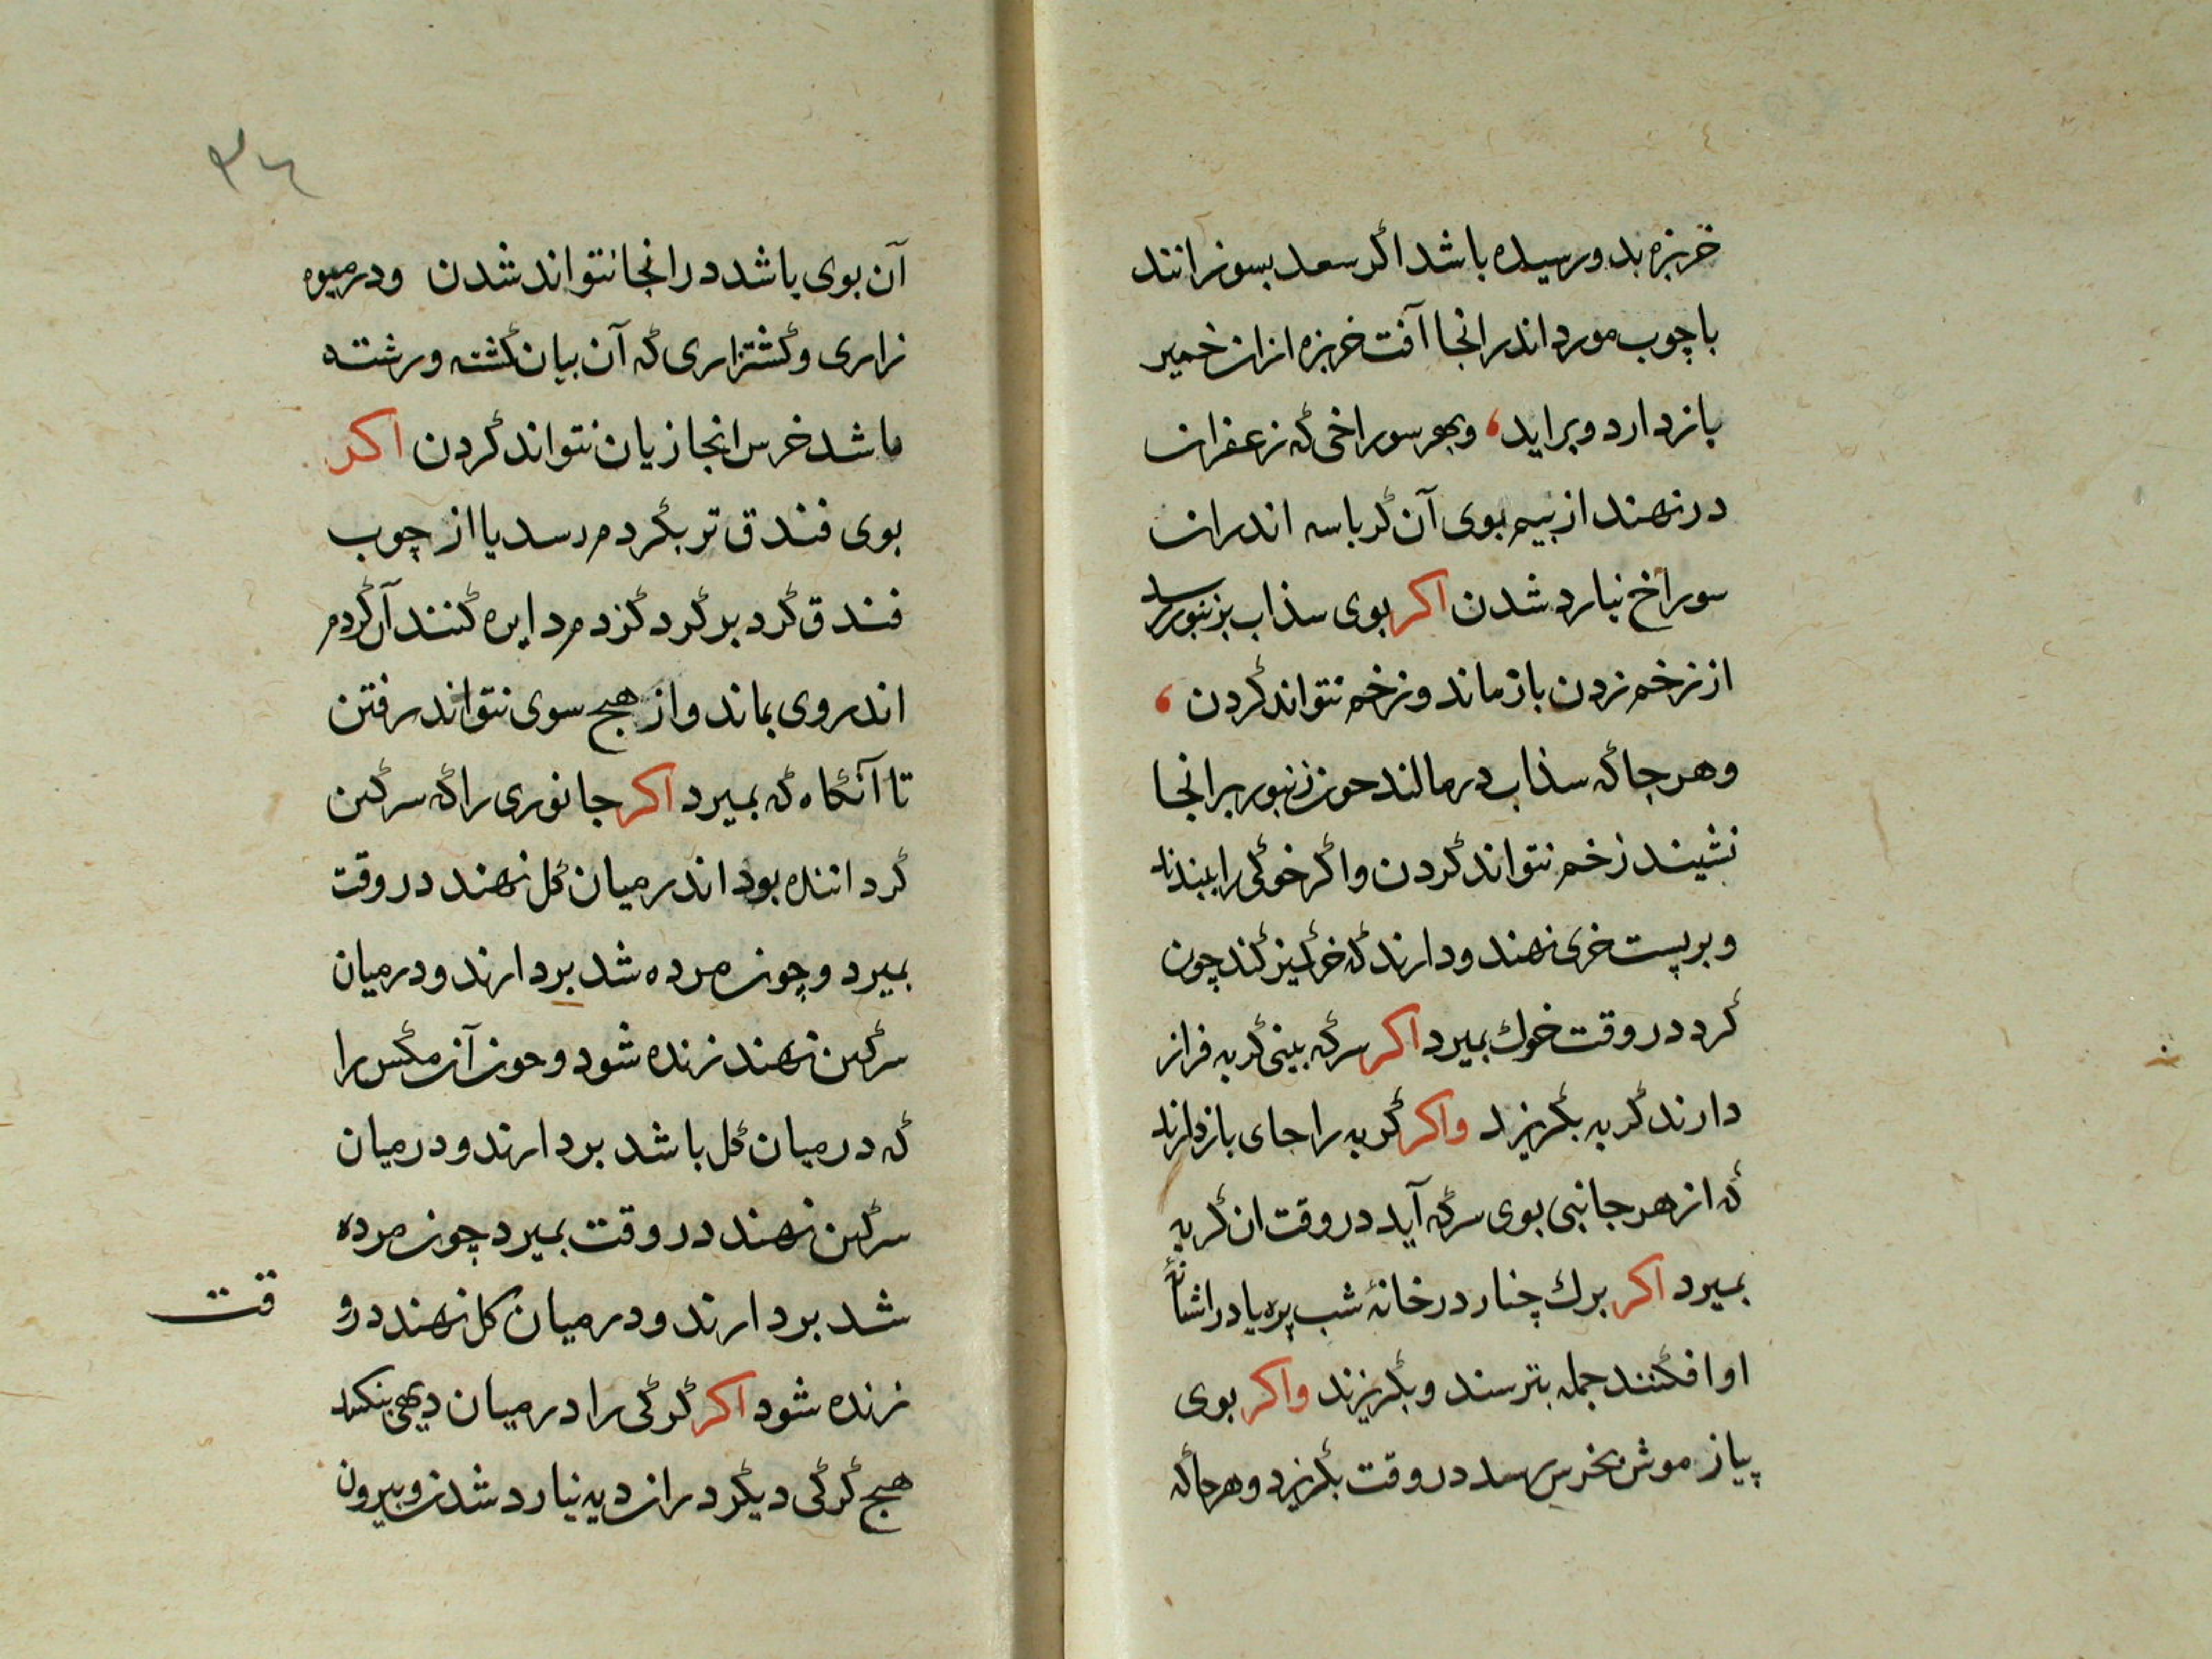 خربزه بدو رسیده باشد اکر سعد بسوزانند
با چوب مورد اندر انجا آفت خربزه از ان خمیر
باز دارد و براید، وبهر سوراخی که زعفران
در نهند از بیم بوی آن کرباسه اندران
سوراخ نیارد شدن اکر بوی سذاب بزنبور رسد
از زخم زدن باز ماند و زخم نتواند کردن ،
وهر جا که سذاب در مالند حون زنبور برانجا
نشیند زخم نتواند کردن واکر خوکی را ببندند
و بر پست خری نهند و دارند که خر کمیز کند چون
کرد در وقت خوک بمیرد اکر سرکه بینی کربه فراز
دارند کربه بکریزد واکر کربه را جای باز دارند
که از هر جانبی بوی سرکه آید در وقت ان کربه
بمیرد اکر برک چنار در خانۀ شب پره یا در اشیانۀ
او افکنند جمله بترسند و بکریزند واکر بوی
پیاز موش بخرس رسد در وقت بکریزد وهر جا که
۳۶
آن بوی باشد در انجا نتواند شدن ودر میوه
زاری و کشتزاری که آن بیان کشته و رشته
ماشد خرس انجا زیان نتواند کردن اکر
بوی فندق تر بکزدم رسد یا از چوب
فندق کرد بر کرد کزدم دایره کنند آن کزدم
اندر وی بماند و از هیج سوی نتواند رفتن
تا آنکاه که بمیرد اکر جانوری را که سرکین
کرداننده بود اندر میان کل نهند در وقت
بمیرد و چون مرده شد بردارند و در میان
سرکین نهند زنده شود و حون آن مکس را
که در میان کل باشد بردارند و در میان
سرکین نهند در وقت بمیرد چون مرده
شد بردارند و در میان کل نهند در و
قت
زنده شود اکر کرکی را در میان دیهی بنکند
هیج کرکی دیکر در ان دیه نیارد شدن و بیرون